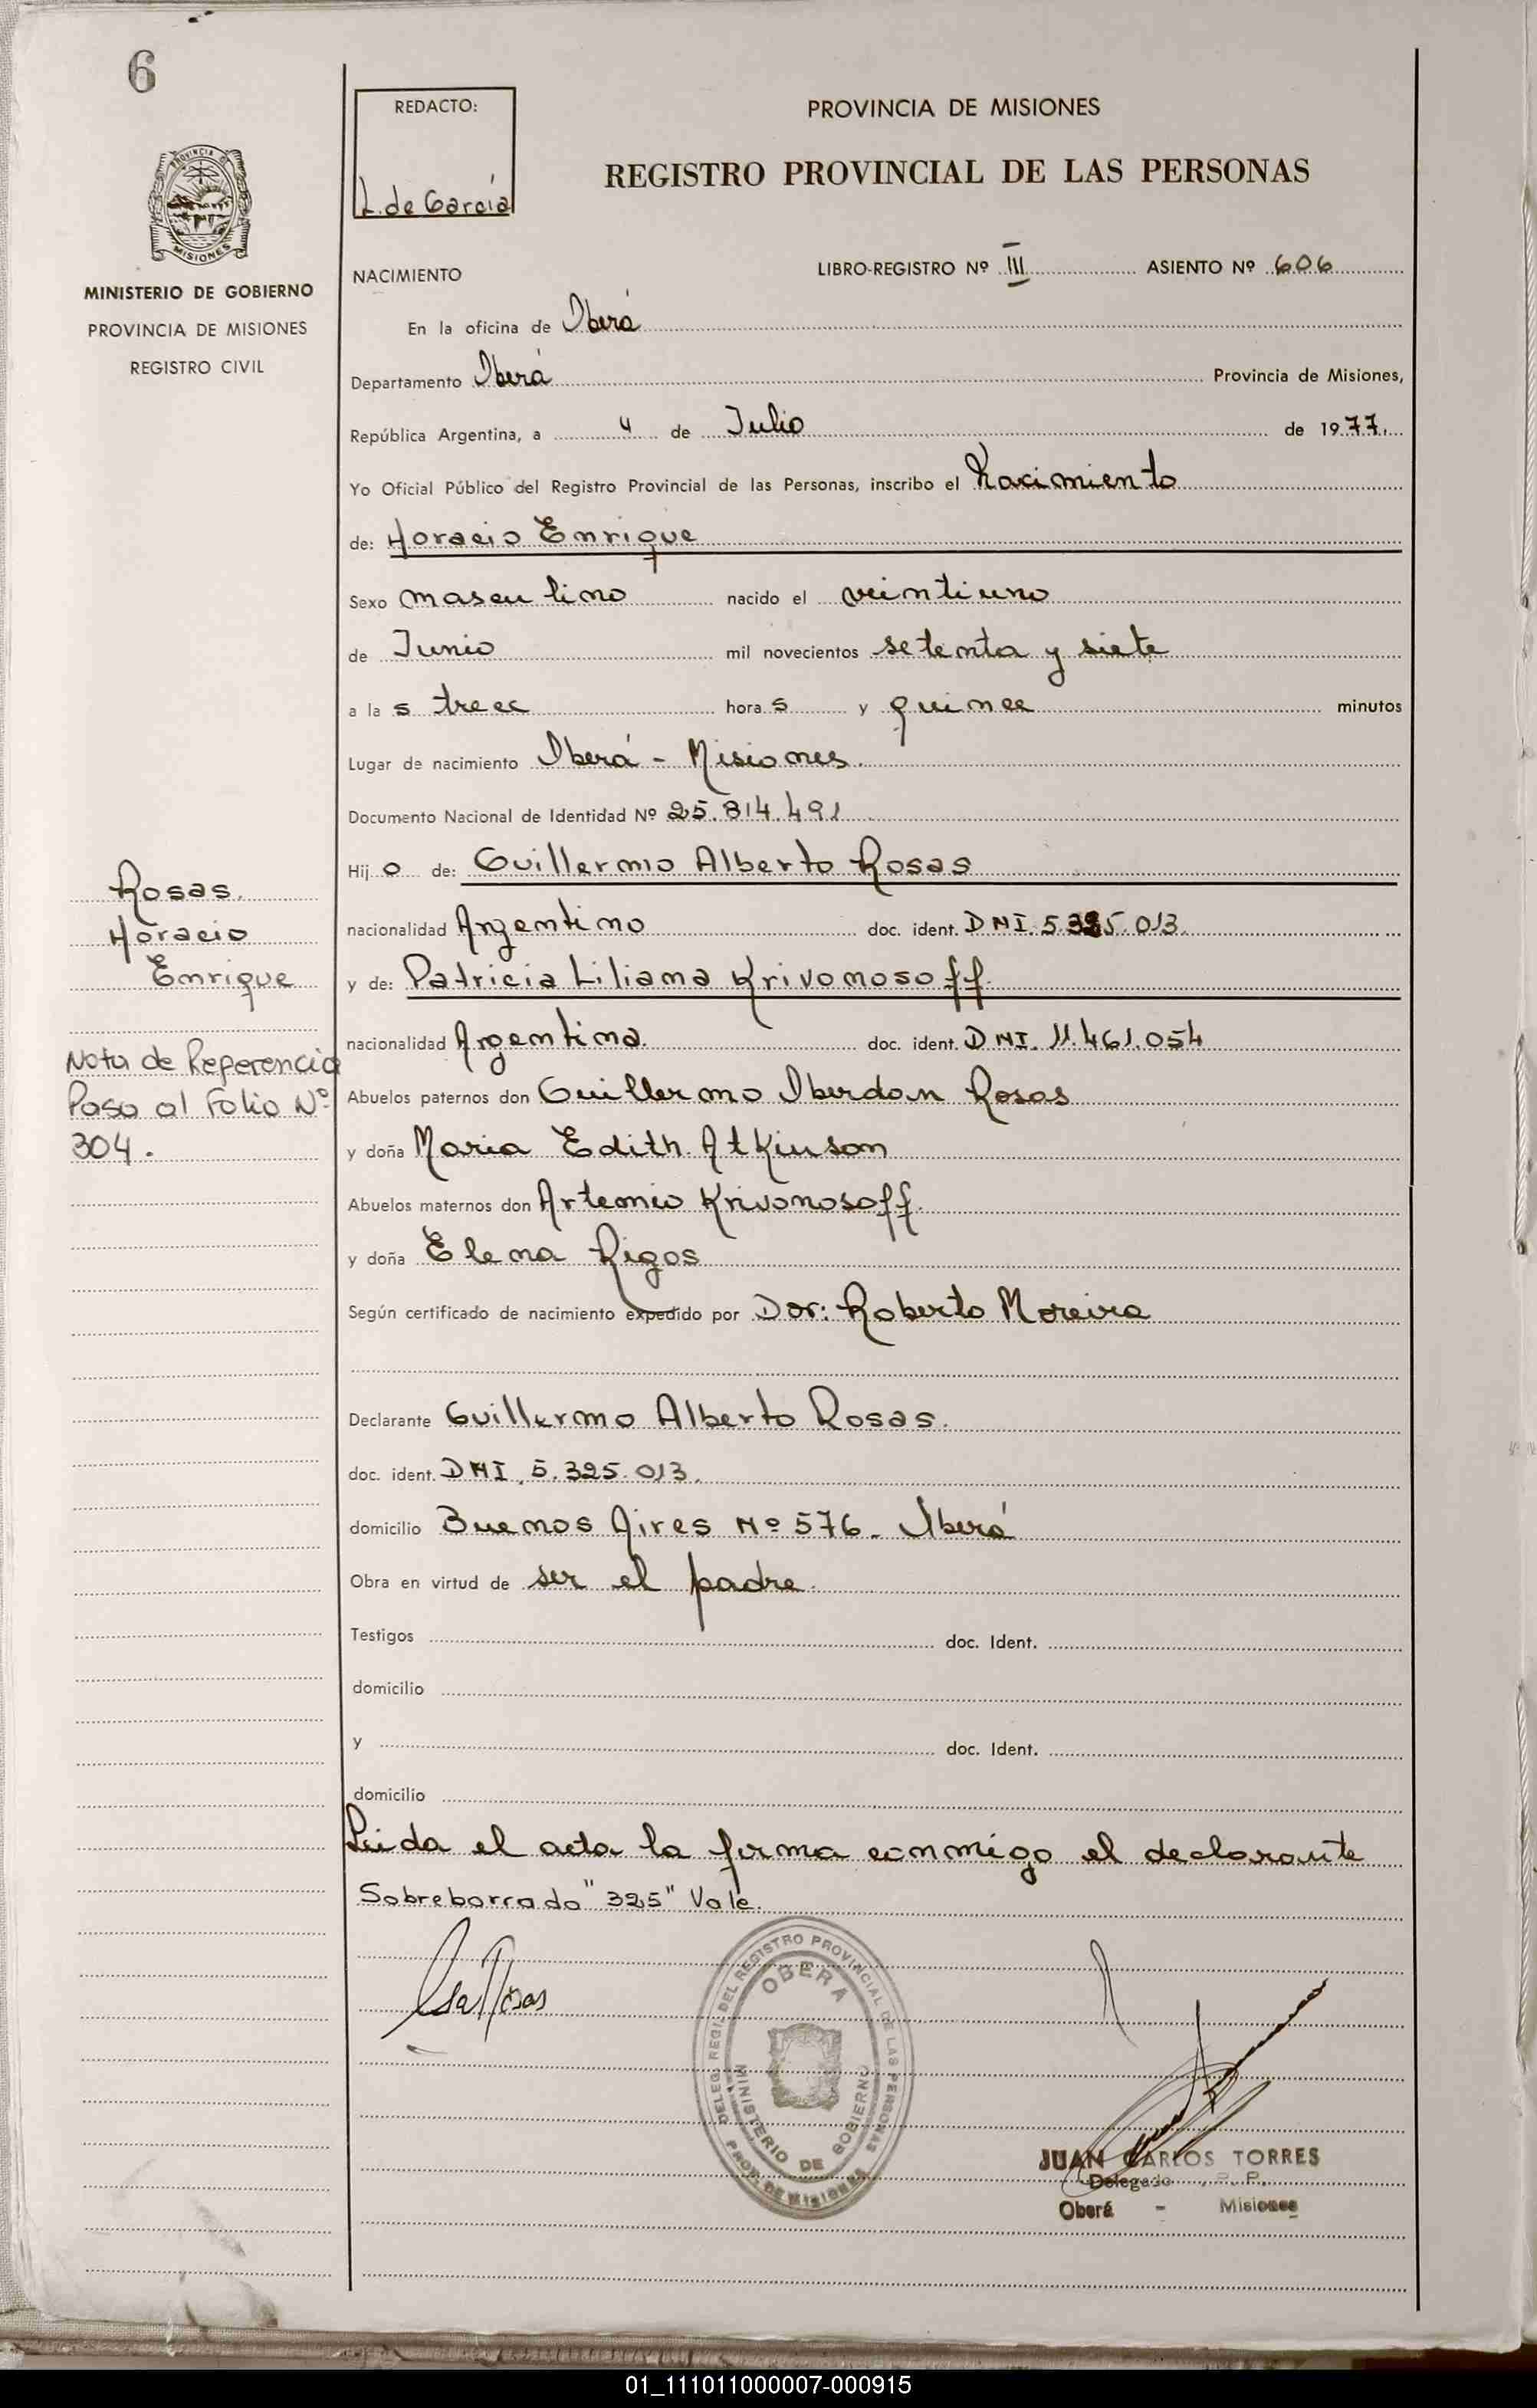 6
REDACTO:
L. de García
PROVINCIA DE MISIONES
REGISTRO PROVINCIAL DE LAS PERSONAS
PROVINCIA DE
MISIONES
MINISTERIO DE GOBIERNO
PROVINCIA DE MISIONES
REGISTRO CIVIL
NACIMIENTO LIBRO-REGISTRO Nº III ASIENTO Nº 606
En la oficina de Oberá
Departamento Oberá Provincia de Misiones,
República Argentina, a 4 de Julio de 1977.
Yo Oficial Público del Registro Provincial de las Personas, inscribo el Nacimiento
de: Horacio Enrique
Sexo masculino nacido el veintiuno
de Junio mil novecientos setenta y siete
a la s trece hora s y quince minutos
Lugar de nacimiento Oberá - Misiones.
Documento Nacional de Identidad Nº 25.814.491
Hij o de: Guillermo Alberto Rosas
nacionalidad Argentino doc. ident. DNI. 5.325.013.
y de: Patricia Liliana Krivonosoff.
nacionalidad Argentina. doc. ident. DNI. 11.461.054
Abuelos paternos don Guillermo Oberdan Rosas
y doña Maria Edith Atkinson
Abuelos maternos don Artemio Krivonosoff.
y doña Elena Rigos
Según certificado de nacimiento expedido por Dor: Roberto Moreira
Declarante Guillermo Alberto Rosas.
doc. ident. DNI. 5.325.013.
domicilio Buenos Aires Nº 576. Oberá
Obra en virtud de ser el padre.
Testigos doc. Ident.
domicilio
y doc. Ident.
domicilio
Leida el acta la firma conmigo el declarante
Sobreborrado "325" Vale.
Rosas.
Horacio
Enrique
Nota de Referencia
Pasa al Folio Nº
304.
DELEG. REGI. DEL REGISTRO PROVINCIAL DE LAS PERSONAS
OBERÁ
MINISTERIO DE GOBIERNO
PROV. DE MISIONES
JUAN CARLOS TORRES
Delegado R. P.
Oberá - Misiones
01_111011000007-000915